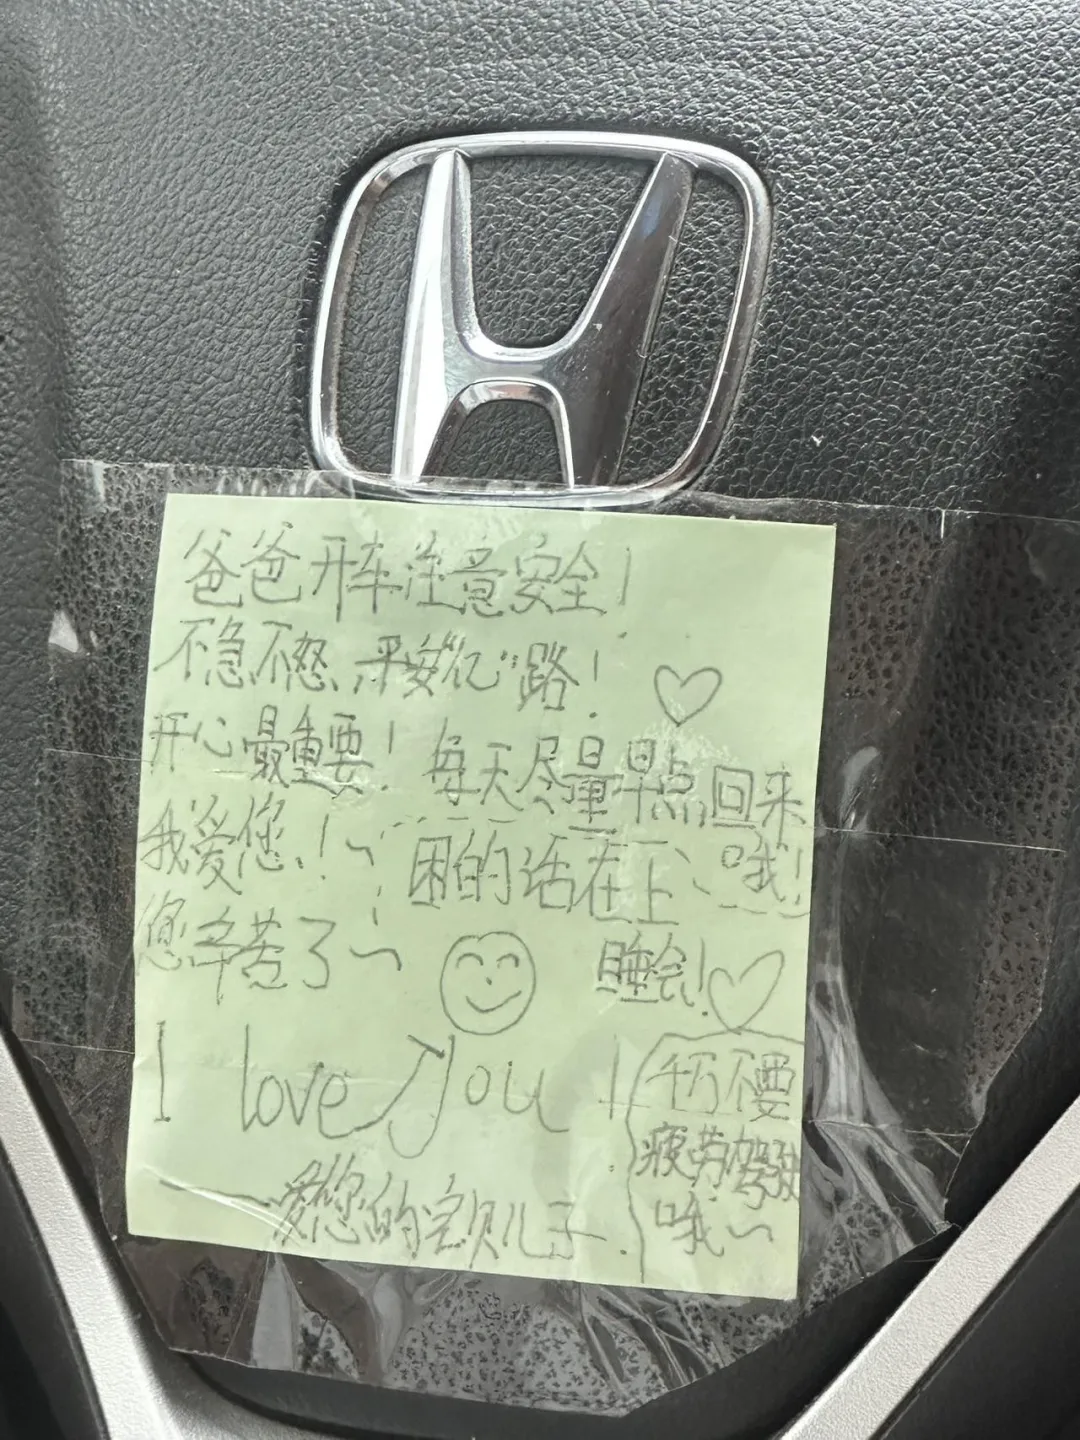 爸爸开车注意安全！
不急不怒，平安“亿”路！
开心最重要！
每天尽量早点回来哦！
我爱您！~
困的话在车上睡会！
您辛苦了~
I love you！
千万不要
疲劳驾驶
哦~
——爱您的宝贝儿子